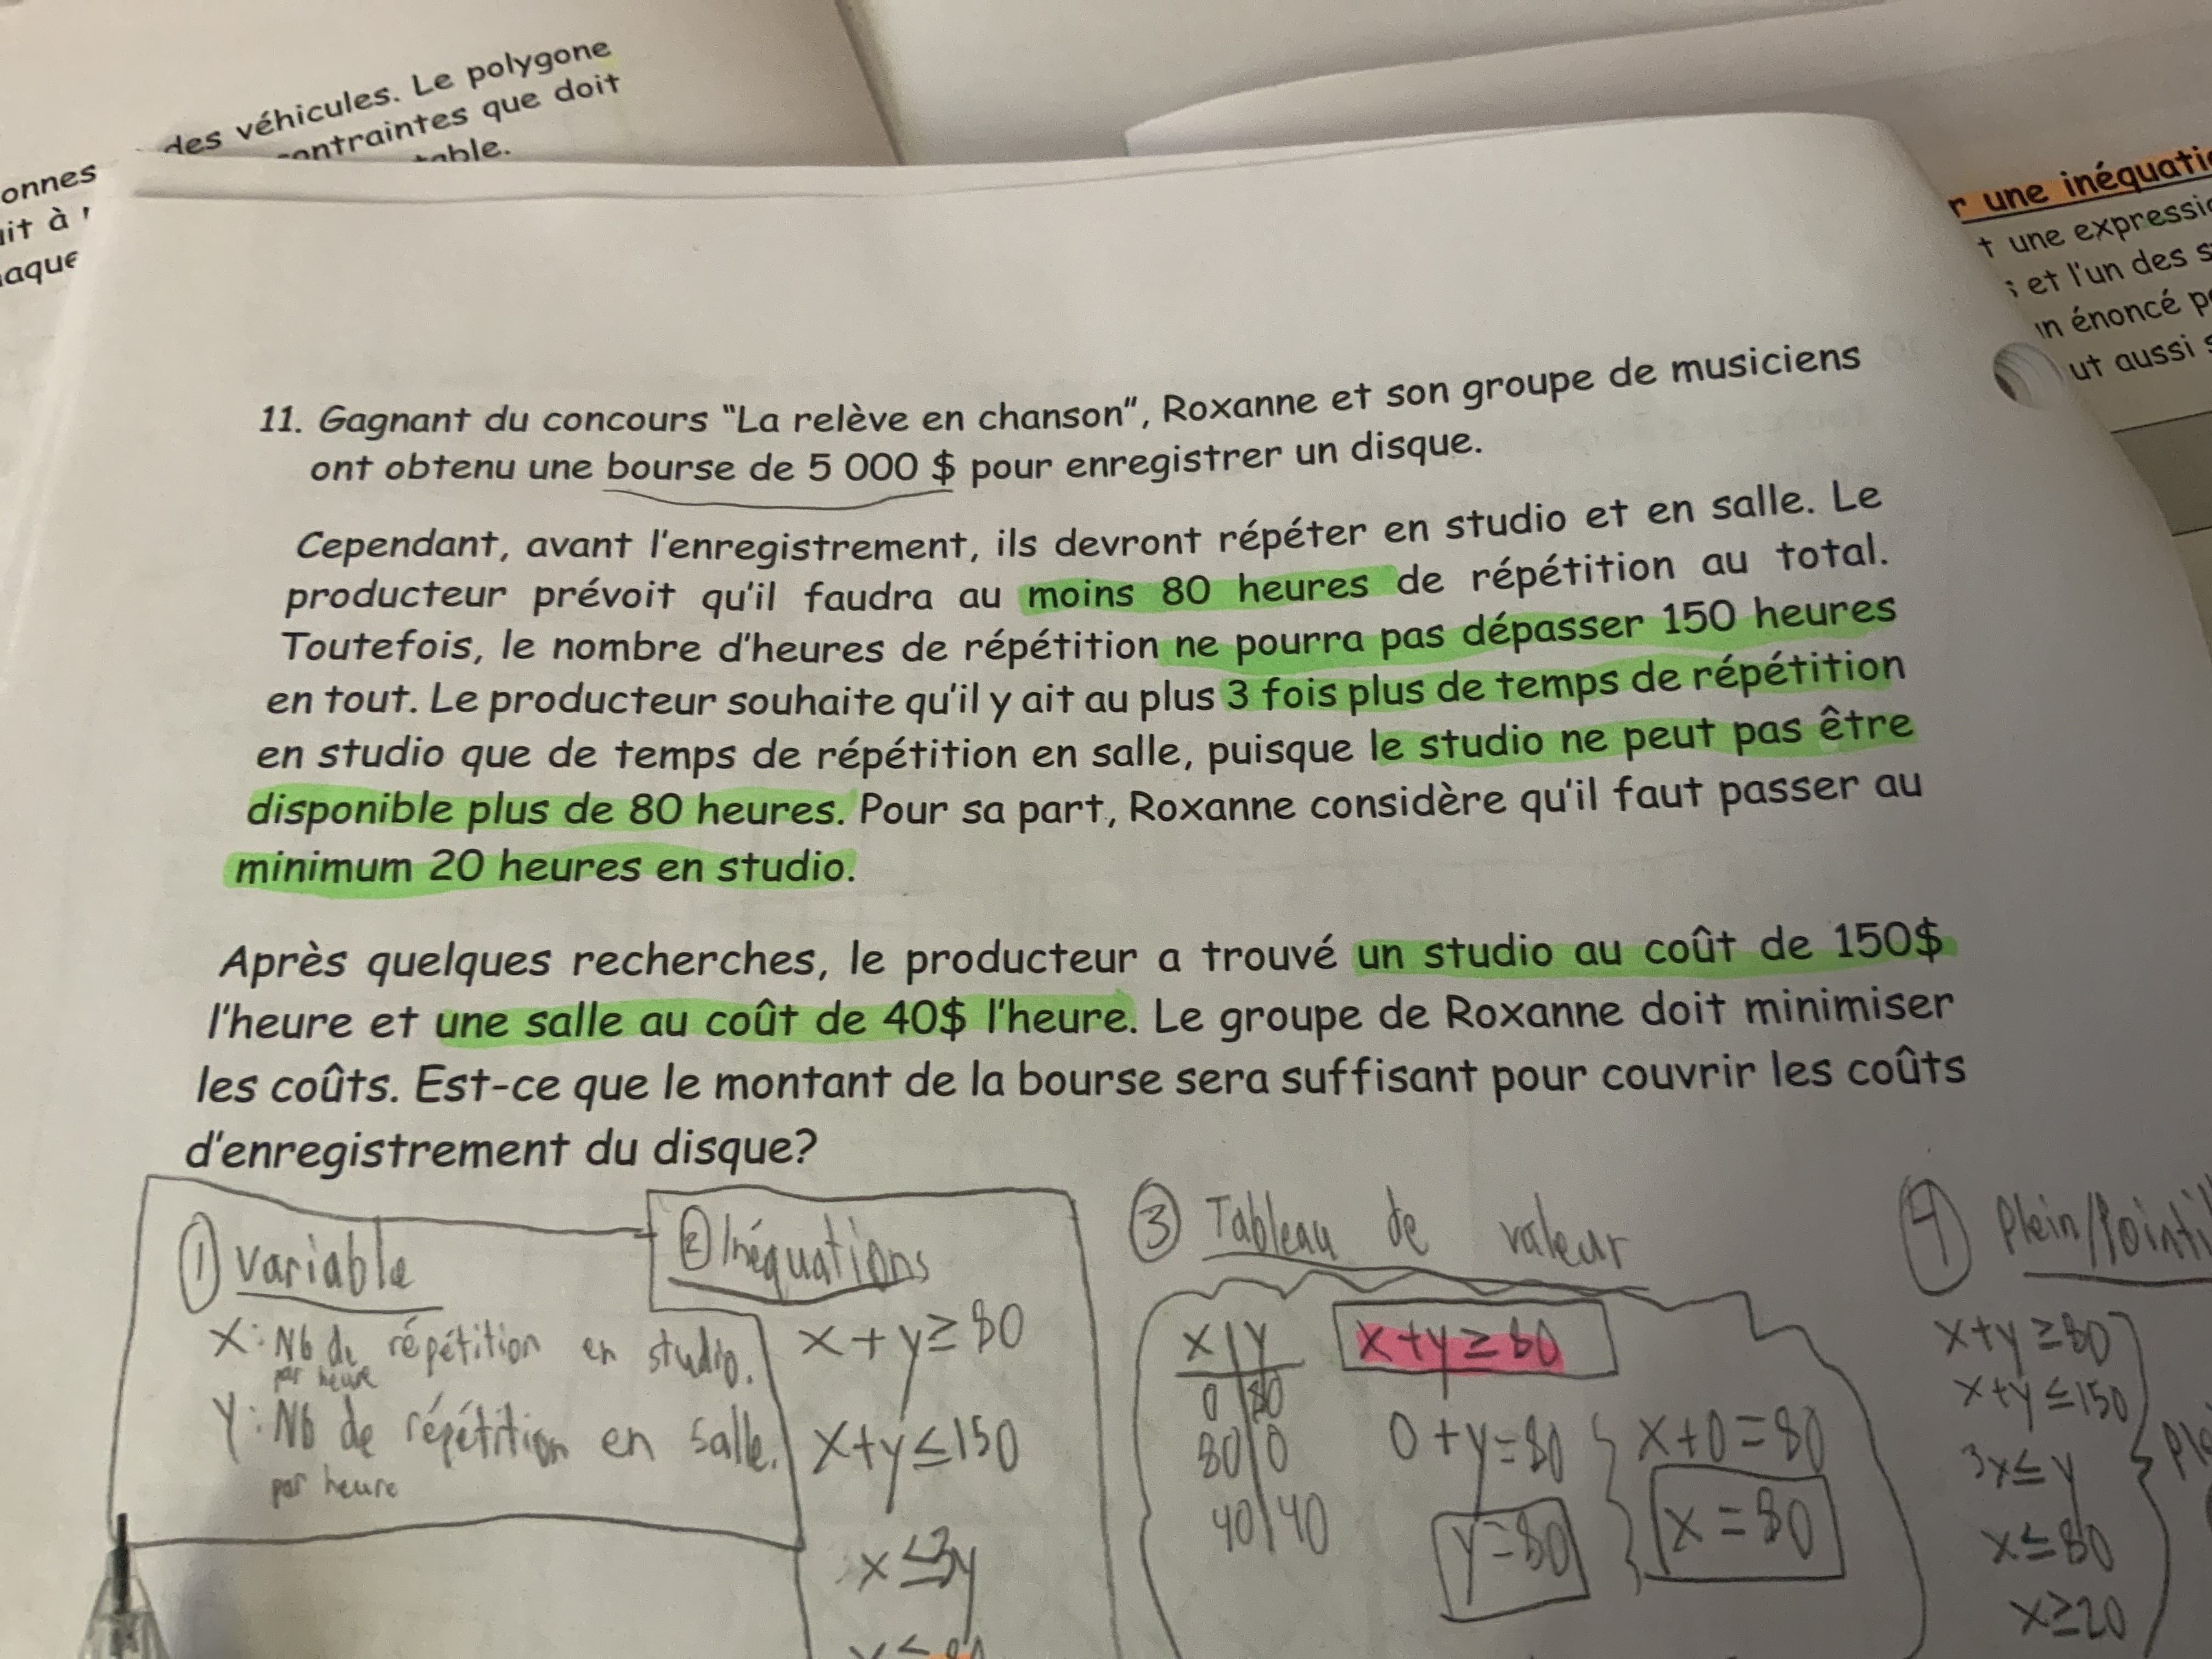 des véhicules. Le polygone
contraintes que doit
table.
onnes
it à
aque
r une inéquati
t une expressi
et l'un des s
un énoncé p
ut aussi s
11. Gagnant du concours "La relève en chanson", Roxanne et son groupe de musiciens
ont obtenu une bourse de 5 000 $ pour enregistrer un disque.
Cependant, avant l'enregistrement, ils devront répéter en studio et en salle. Le
producteur prévoit qu'il faudra au moins 80 heures de répétition au total.
Toutefois, le nombre d'heures de répétition ne pourra pas dépasser 150 heures
en tout. Le producteur souhaite qu'il y ait au plus 3 fois plus de temps de répétition
en studio que de temps de répétition en salle, puisque le studio ne peut pas être
disponible plus de 80 heures. Pour sa part, Roxanne considère qu'il faut passer au
minimum 20 heures en studio.
Après quelques recherches, le producteur a trouvé un studio au coût de 150$
l'heure et une salle au coût de 40$ l'heure. Le groupe de Roxanne doit minimiser
les coûts. Est-ce que le montant de la bourse sera suffisant pour couvrir les coûts
d'enregistrement du disque?
① Variable
X: Nb de répétition en studio.
par heure
Y: Nb de répétition en salle.
par heure
② Inéquations
x+y≥80
x+y≤150
x≤3y
③ Tableau de valeur
x | y
0 | 80
80 | 0
40 | 40
x+y≥80
0+y=80
y=80
x+0=80
x=80
④ Plein/Pointi
x+y≥80
x+y≤150
3x≤y
x≤80
x≥20